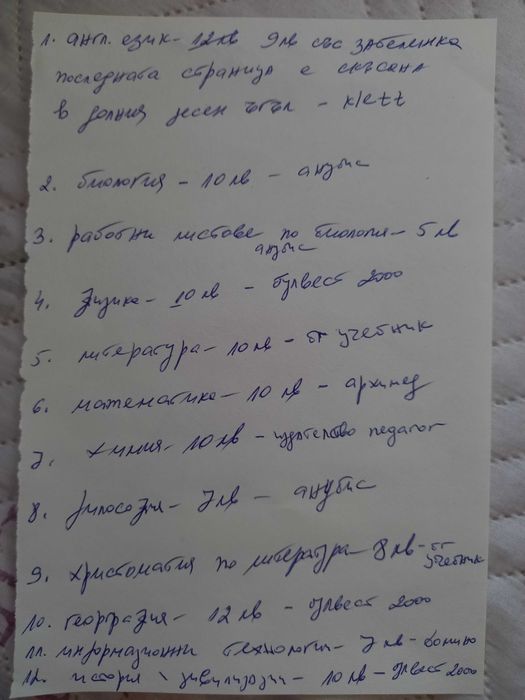 1. англ. език - 12 лв 9 лв със забележка
последната страница е скъсана
в долния десен ъгъл - klett
2. биология - 10 лв - анубис
3. работни листове по биология - 5 лв
анубис
4. физика - 10 лв - булвест 2000
5. литература - 10 лв - бг учебник
6. математика - 10 лв - архимед
7. химия - 10 лв - издателство педагог
8. философия - 7 лв - анубис
9. христоматия по литература - 8 лв - бг
учебник
10. география - 12 лв - булвест 2000
11. информационни технологии - 7 лв - домино
12. история и цивилизации - 10 лв - булвест 2000